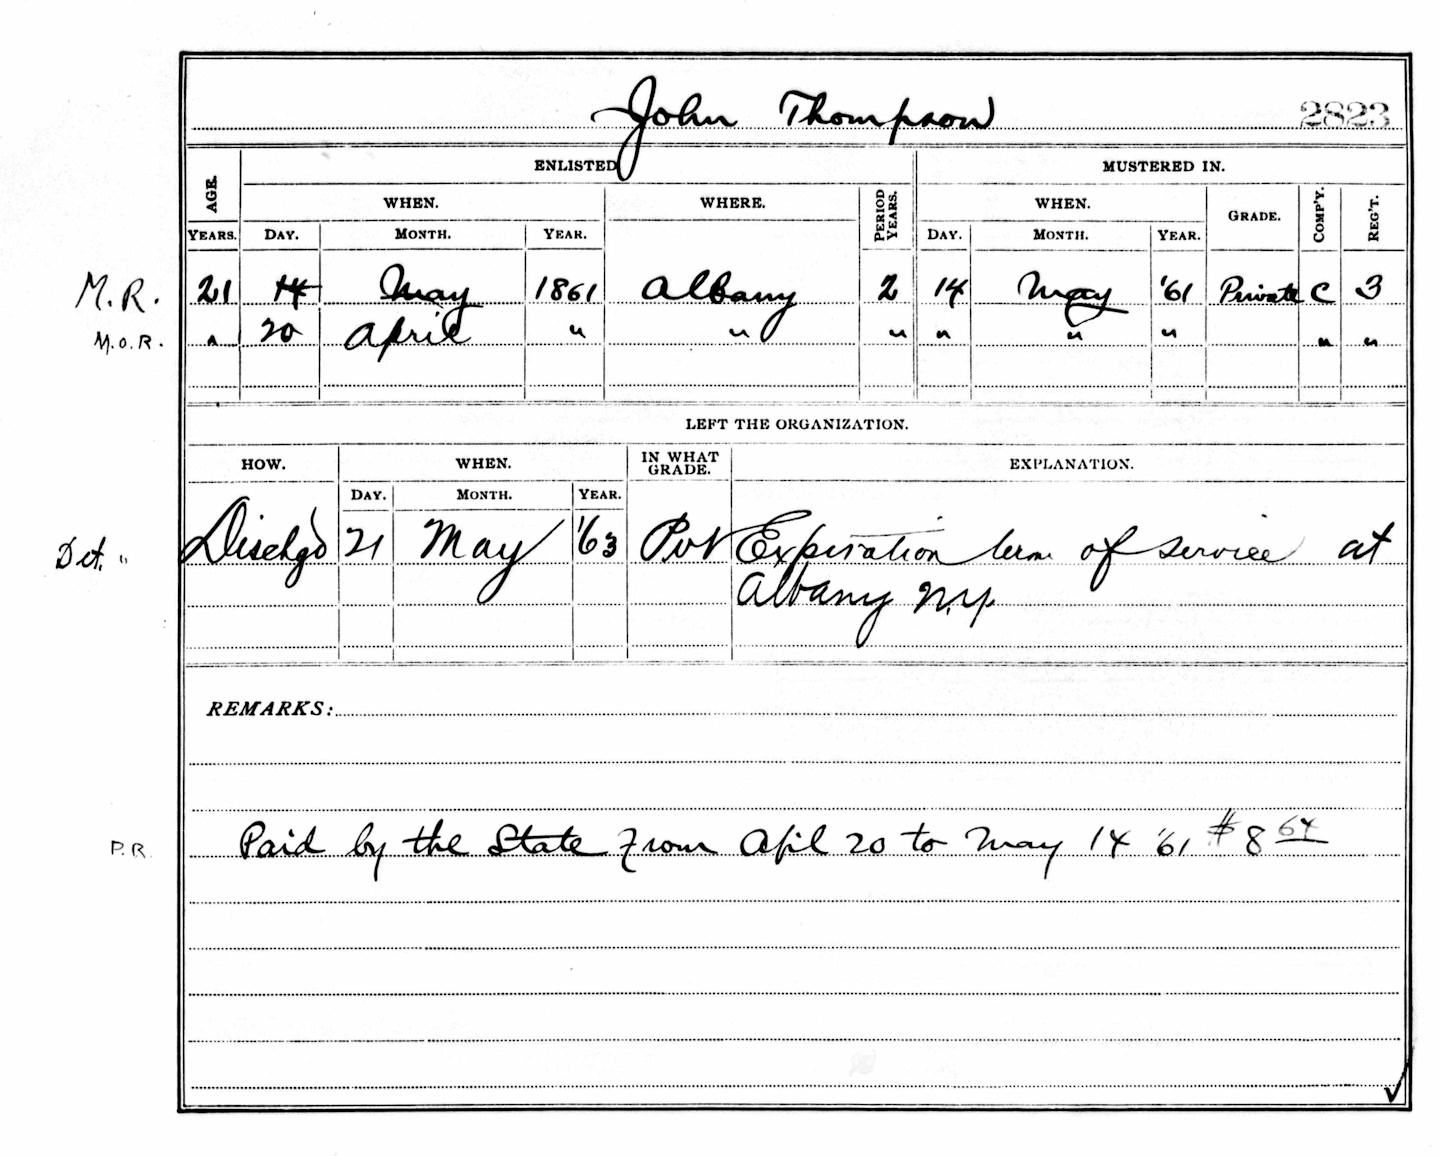 John Thompson 2823
ENLISTED MUSTERED IN.
AGE. WHEN. WHERE. PERIOD YEARS. WHEN. GRADE. COMP'Y. REG'T.
YEARS. DAY. MONTH. YEAR. DAY. MONTH. YEAR.
M.R. 21 14 May 1861 Albany 2 14 May '61 Private C 3
M.O.R. " 20 April " " " " " " " "
LEFT THE ORGANIZATION.
HOW. WHEN. IN WHAT GRADE. EXPLANATION.
DAY. MONTH. YEAR.
Det. " Dischg'd 21 May '63 Pvt Expiration term of service at
Albany N.Y.
REMARKS:
P.R. Paid by the State from Apil 20 to May 14 '61 $8 64